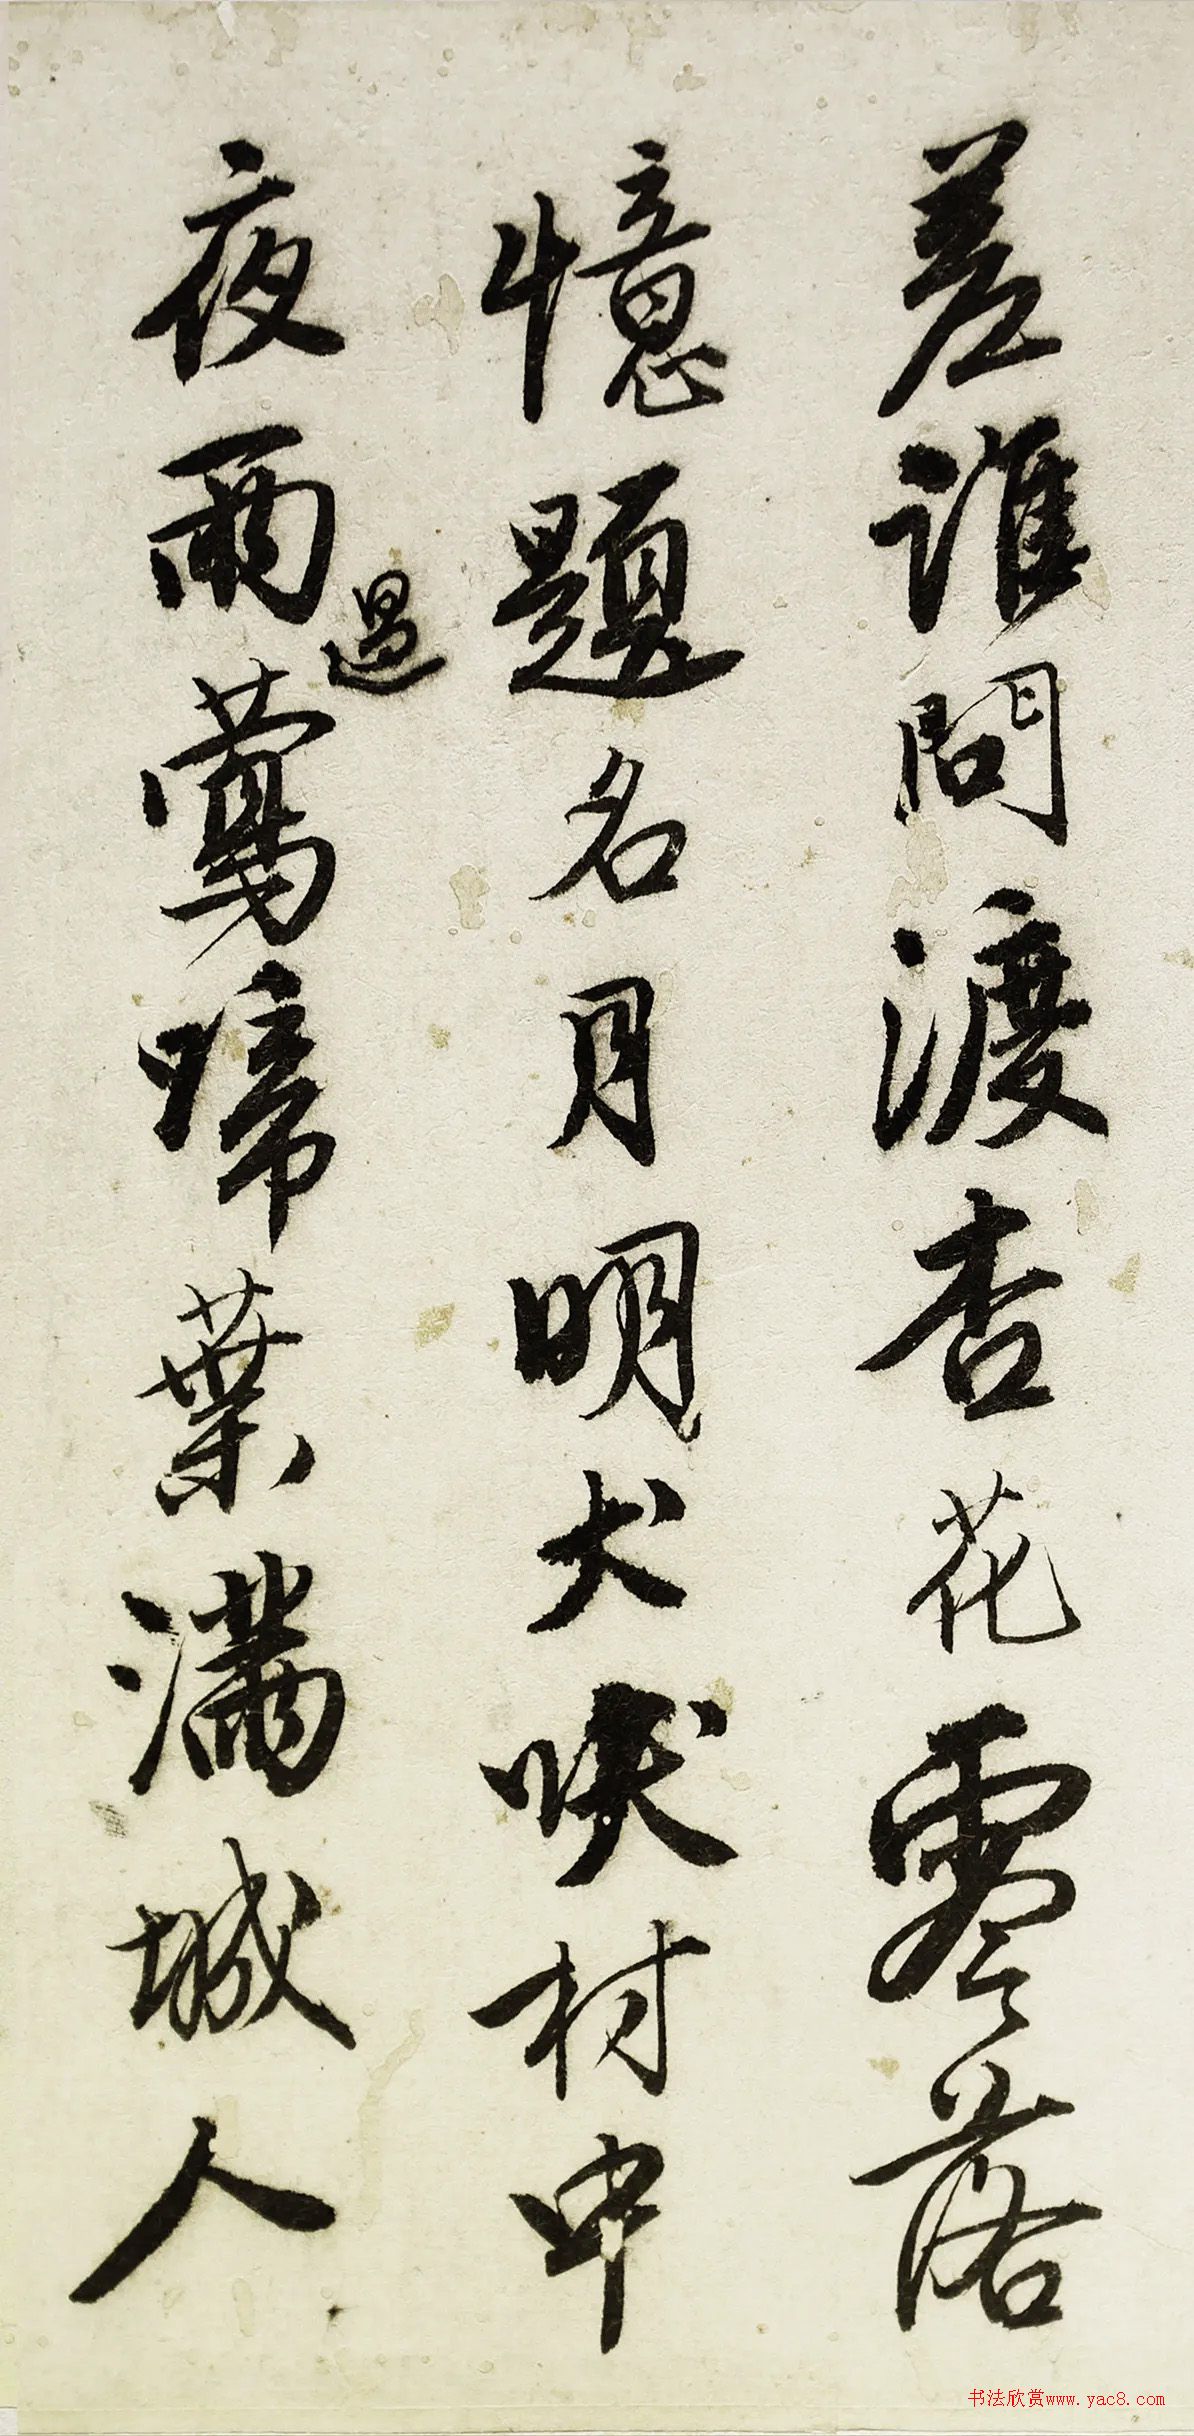 差誰問渡杏花零落
憶題名月明犬吠村中
夜雨過鶯啼葉滿城人
书法欣赏www.yac8.com